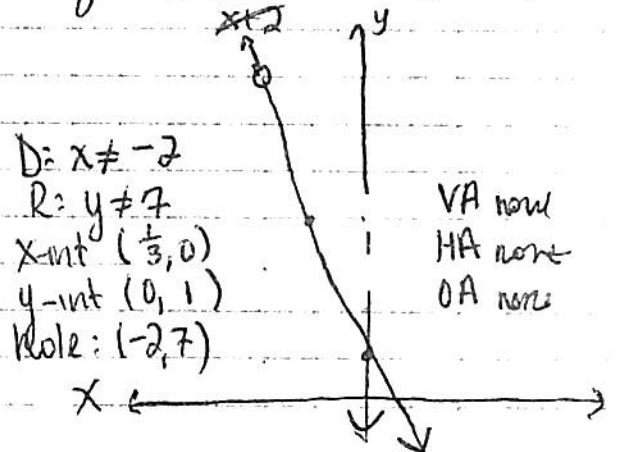 x+2
y
D: x ≠ -2
R: y ≠ 7
x-int (1/3, 0)
y-int (0, 1)
Hole: (-2, 7)
VA none
HA none
OA none
X